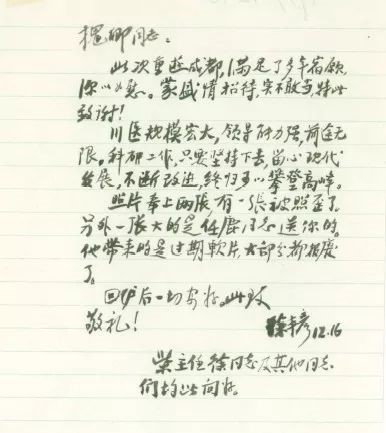 同志:
此次重逛成都,满足了多年宿愿
深以为慰。蒙盛情招待,实不敢当,特此
致谢!
川医规模宏大,领导能力强,前途无
限。科研工作,只要坚持下去,留心现代
发展,不断改进,终归可以攀登高峰。
照片奉上两张有一張被照歪了。
另外一张大的是任同志送你的。
他带来的是过期軟片,大部分都报废
了。
回沪后一切安好。此致
敬礼!
12.16
荣主任徐同志及其他同志
们均此问好。